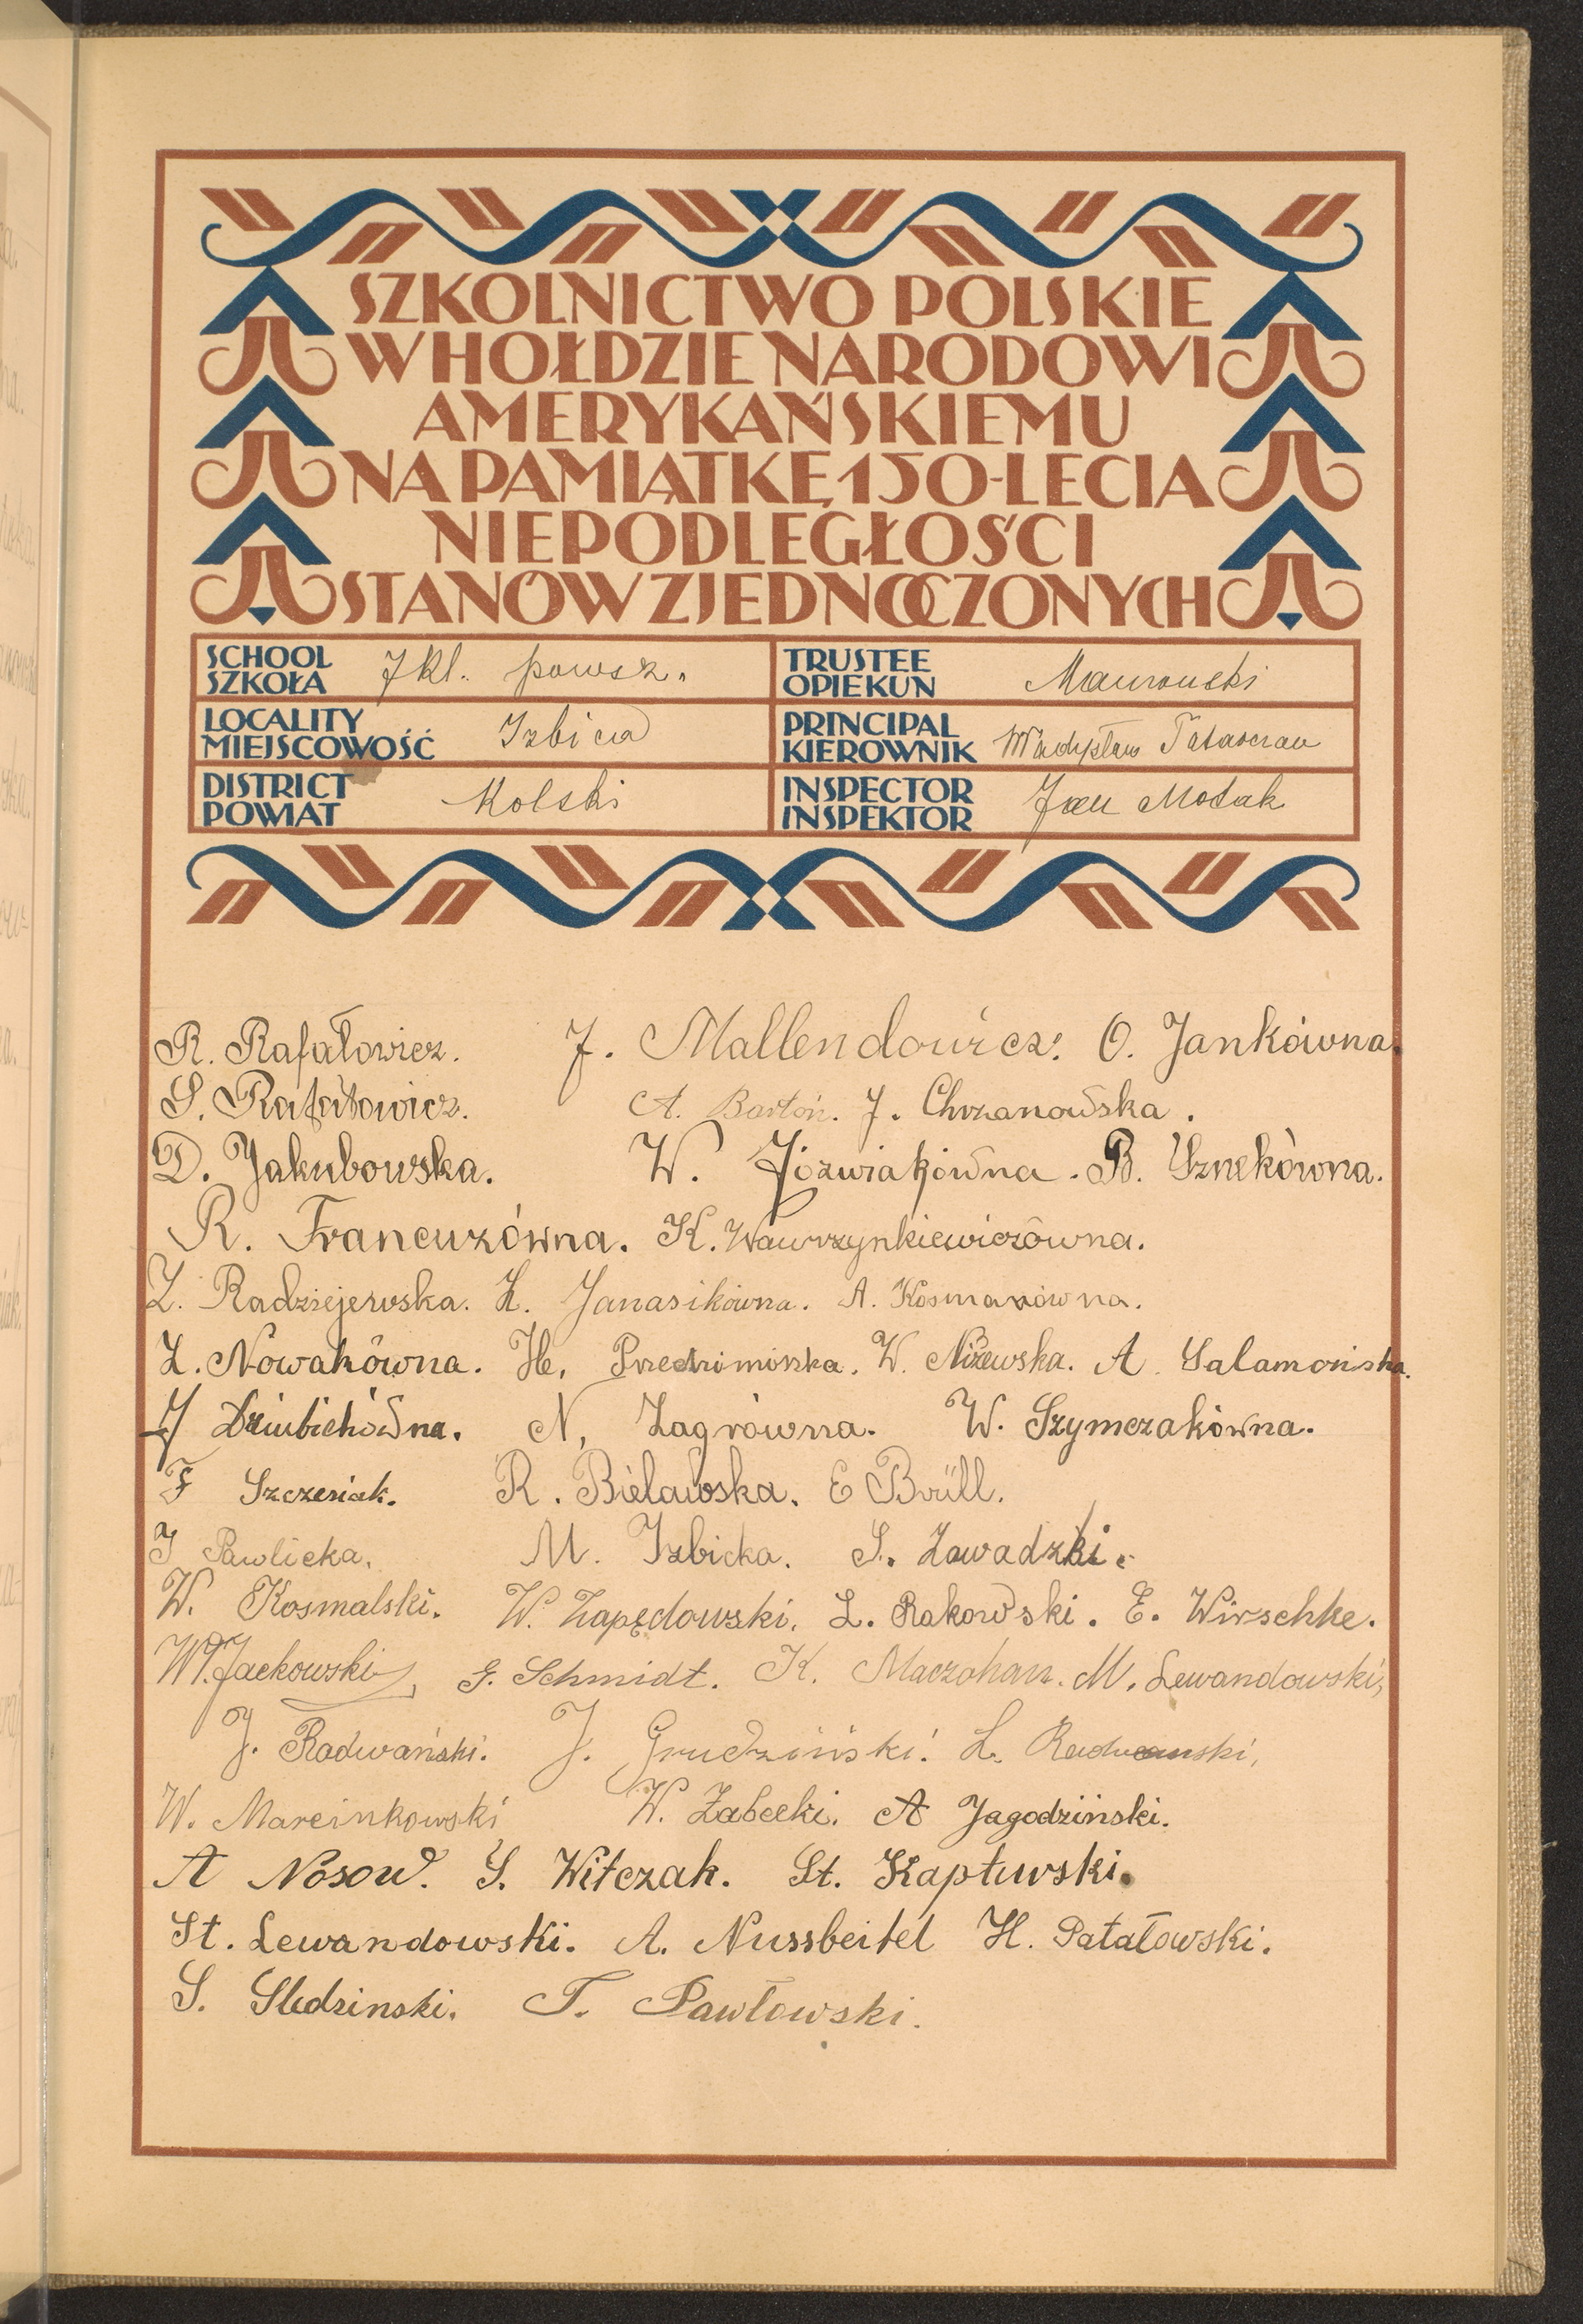 SZKOLNICTWO POLSKIE
W HOŁDZIE NARODOWI
AMERYKAŃSKIEMU
NA PAMIĄTKĘ 150-LECIA
NIEPODLEGŁOŚCI
STANÓW ZJEDNOCZONYCH
SCHOOL
SZKOŁA 7 kl. powsz.
TRUSTEE
OPIEKUN
LOCALITY
MIEJSCOWOŚĆ Izbica
PRINCIPAL
KIEROWNIK Władysław
DISTRICT
POWIAT Kolski
INSPECTOR
INSPEKTOR Jan
R. Rafałowicz. J. Mallendowicz. O. Jankówna.
S. Rafałowicz. A. Bartoń. J. Chrzanowska.
D. Jakubowska. W. Józwiakówna. B. Sznekówna.
R. Francuzówna. K. Wawrzynkiewiczówna.
Z. Radziejewska. Z. Janasikówna. A. Kosmanówna.
Z. Nowakówna. He. W. Niżewska. A. Salamońska.
J Dziubichówna. N, Zagrówna. W. Szymczakówna.
F Szczesiak. R. Bielawska. E Brüll.
J Pawlicka. M. Izbicka. S. Zawadzki.
W. Kosmalski. W. Zapędowski. L. Rakowski. E. Wirschke.
Wł. Jackowski, G. Schmidt. K. M. Lewandowski,
J. Radwański. J. Grudziński. L. Radwanski,
W. Marcinkowski W. Żabecki. A Jagodziński.
A Nosow. S. Witczak. St. Kapturski.
St. Lewandowski. A. Nussbeitel H. Patałowski.
S. Sledzinski. T. Pawłowski.